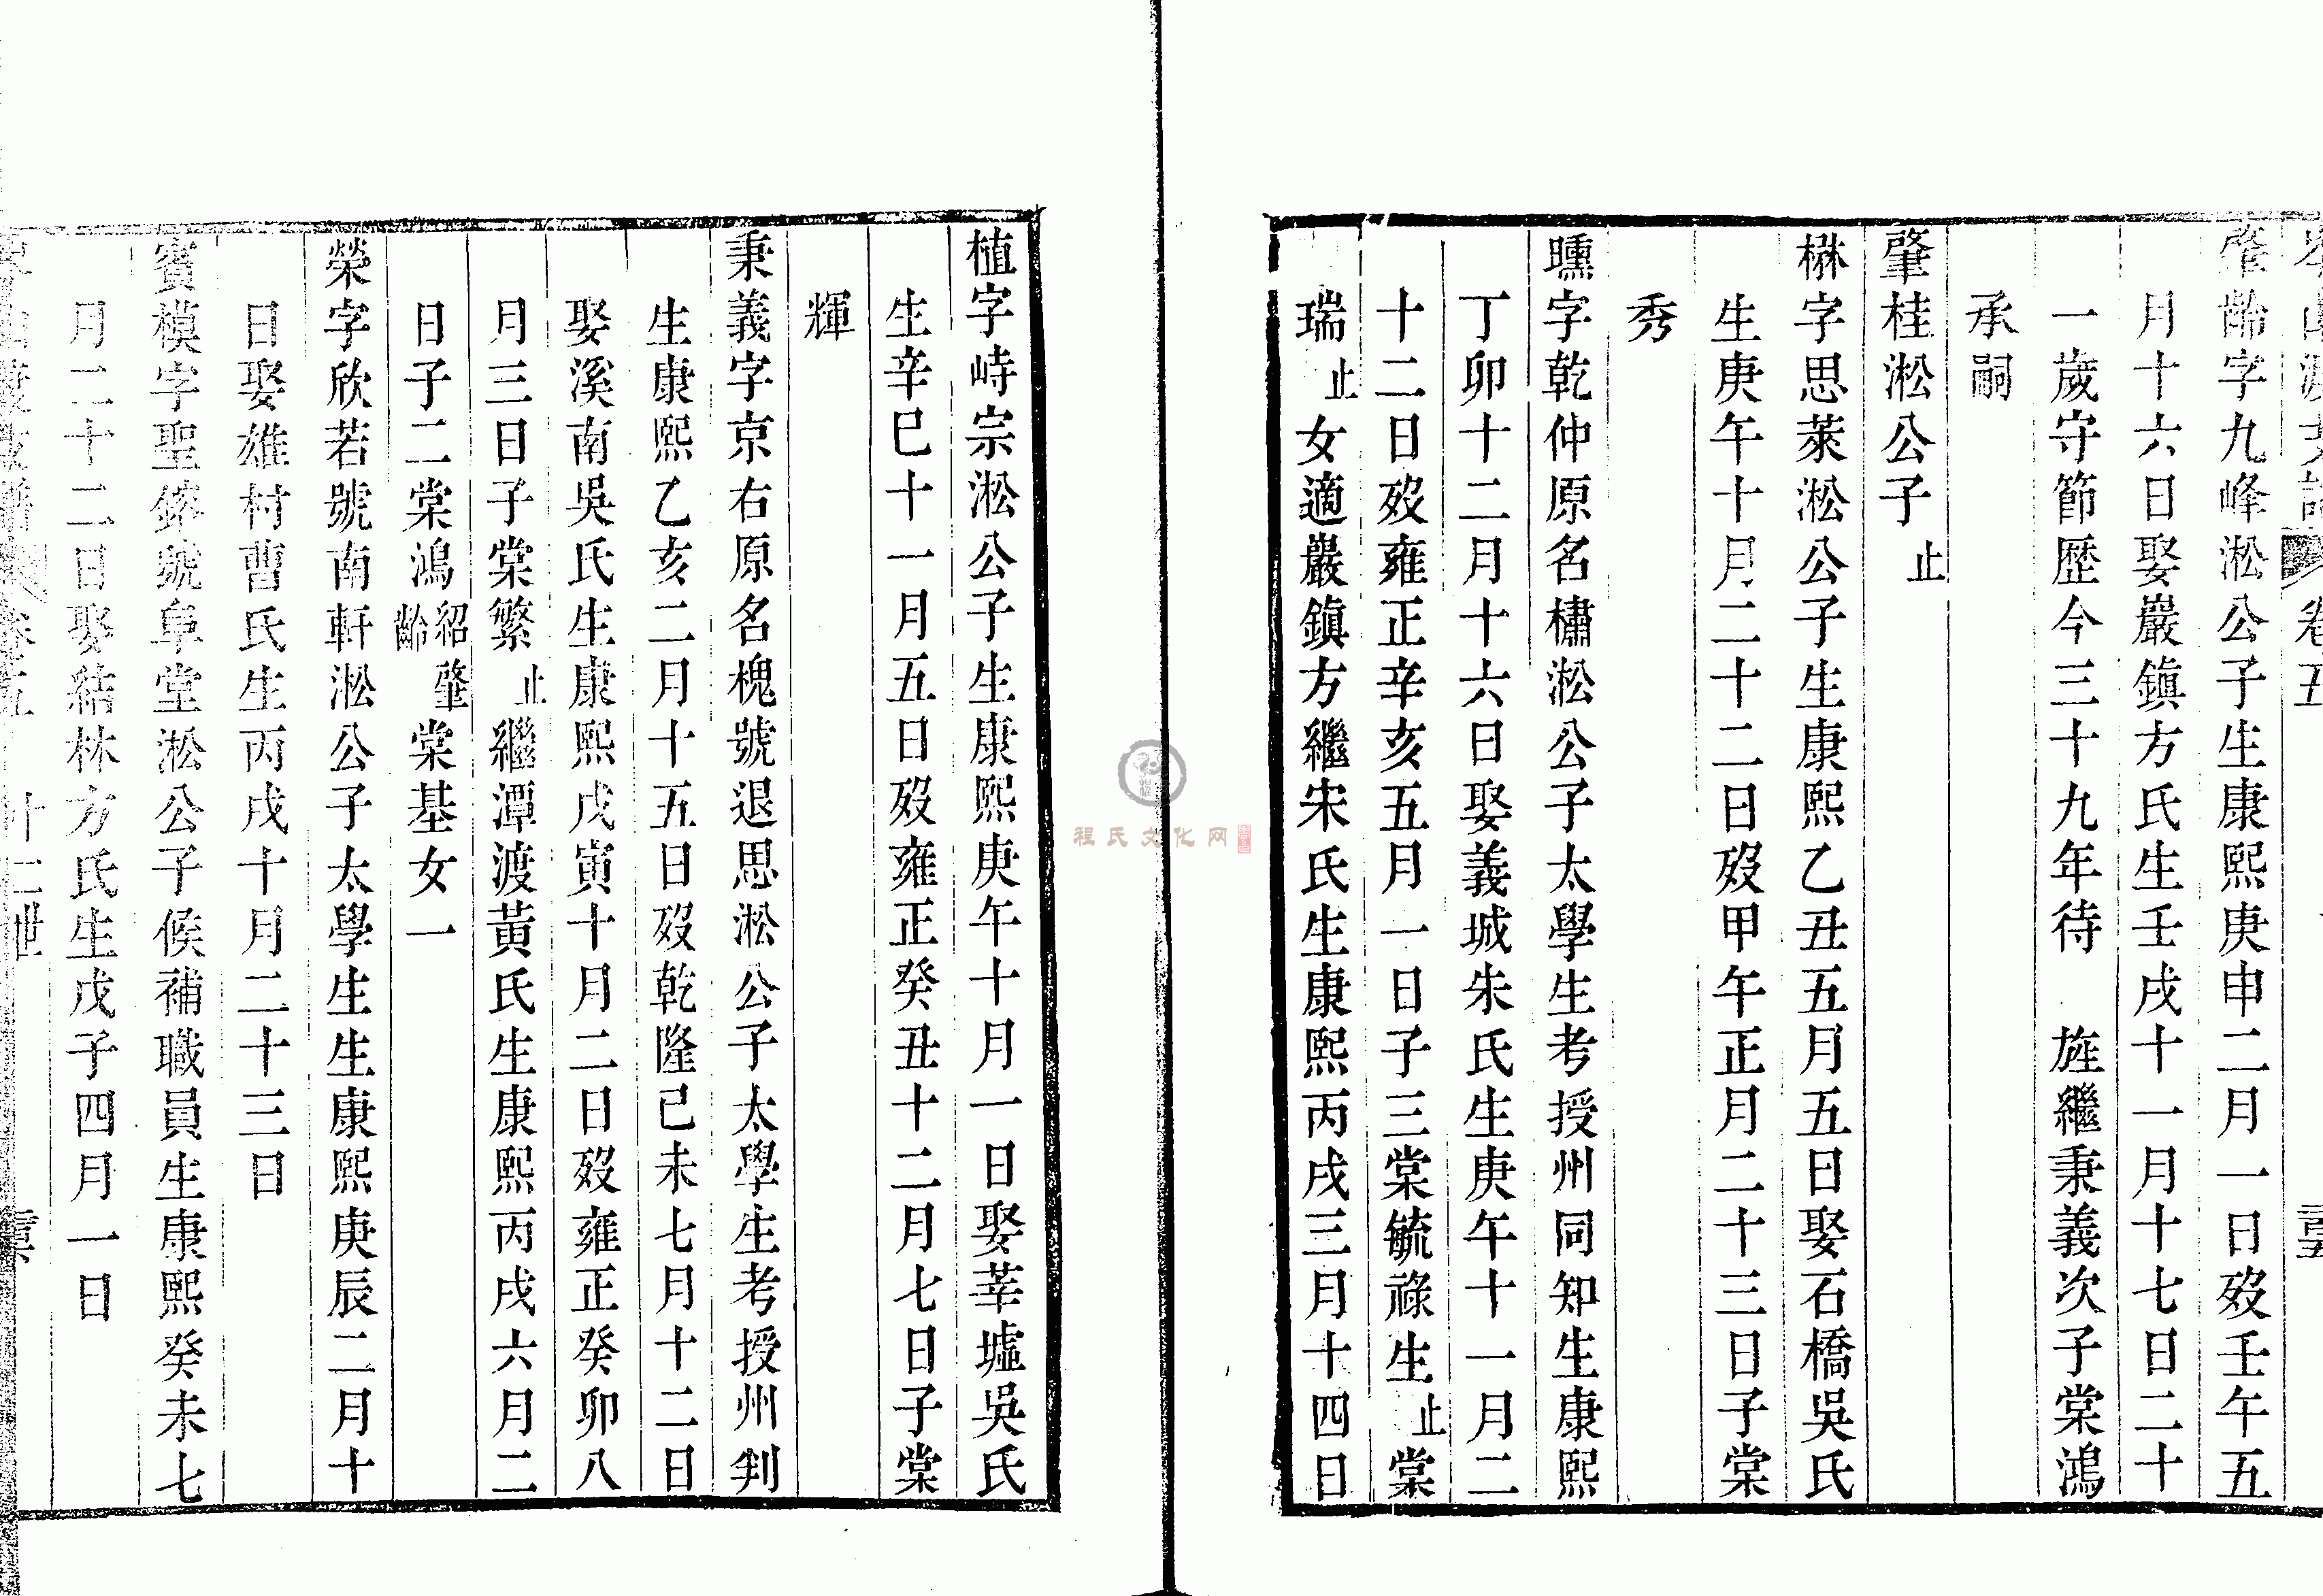 卷五
肇齡字九峰淞公子生康熙庚申二月一日歿壬午五
月十六日娶巖鎮方氏生壬戌十一月十七日二十
一歲守節歷今三十九年待 旌繼秉義次子棠鴻
承嗣
肇桂淞公子止
楙字思萊淞公子生康熙乙丑五月五日娶石橋吳氏
生庚午十月二十二日歿甲午正月二十三日子棠
秀
曛字乾仲原名橚淞公子太學生考授州同知生康熙
丁卯十二月十六日娶義城朱氏生庚午十一月二
十二日歿雍正辛亥五月一日子三棠毓祿生止棠
瑞止女適巖鎮方繼宋氏生康熙丙戌三月十四日
植字峙宗淞公子生康熙庚午十月一日娶莘墟吳氏
生辛巳十一月五日歿雍正癸丑十二月七日子棠
輝
秉義字京右原名槐號退思淞公子太學生考授州判
生康熙乙亥二月十五日歿乾隆己未七月十二日
娶溪南吳氏生康熙戊寅十月二日歿雍正癸卯八
月三日子棠繁止繼潭渡黃氏生康熙丙戌六月二
日子二棠鴻紹肇齡棠基女一
榮字欣若號南軒淞公子太學生生康熙庚辰二月十
日娶雄村曹氏生丙戌十月二十三日
賓模字聖鎔號阜堂淞公子候補職員生康熙癸未七
月二十二日娶結林方氏生戊子四月一日
卷五 十二世
程氏文化网